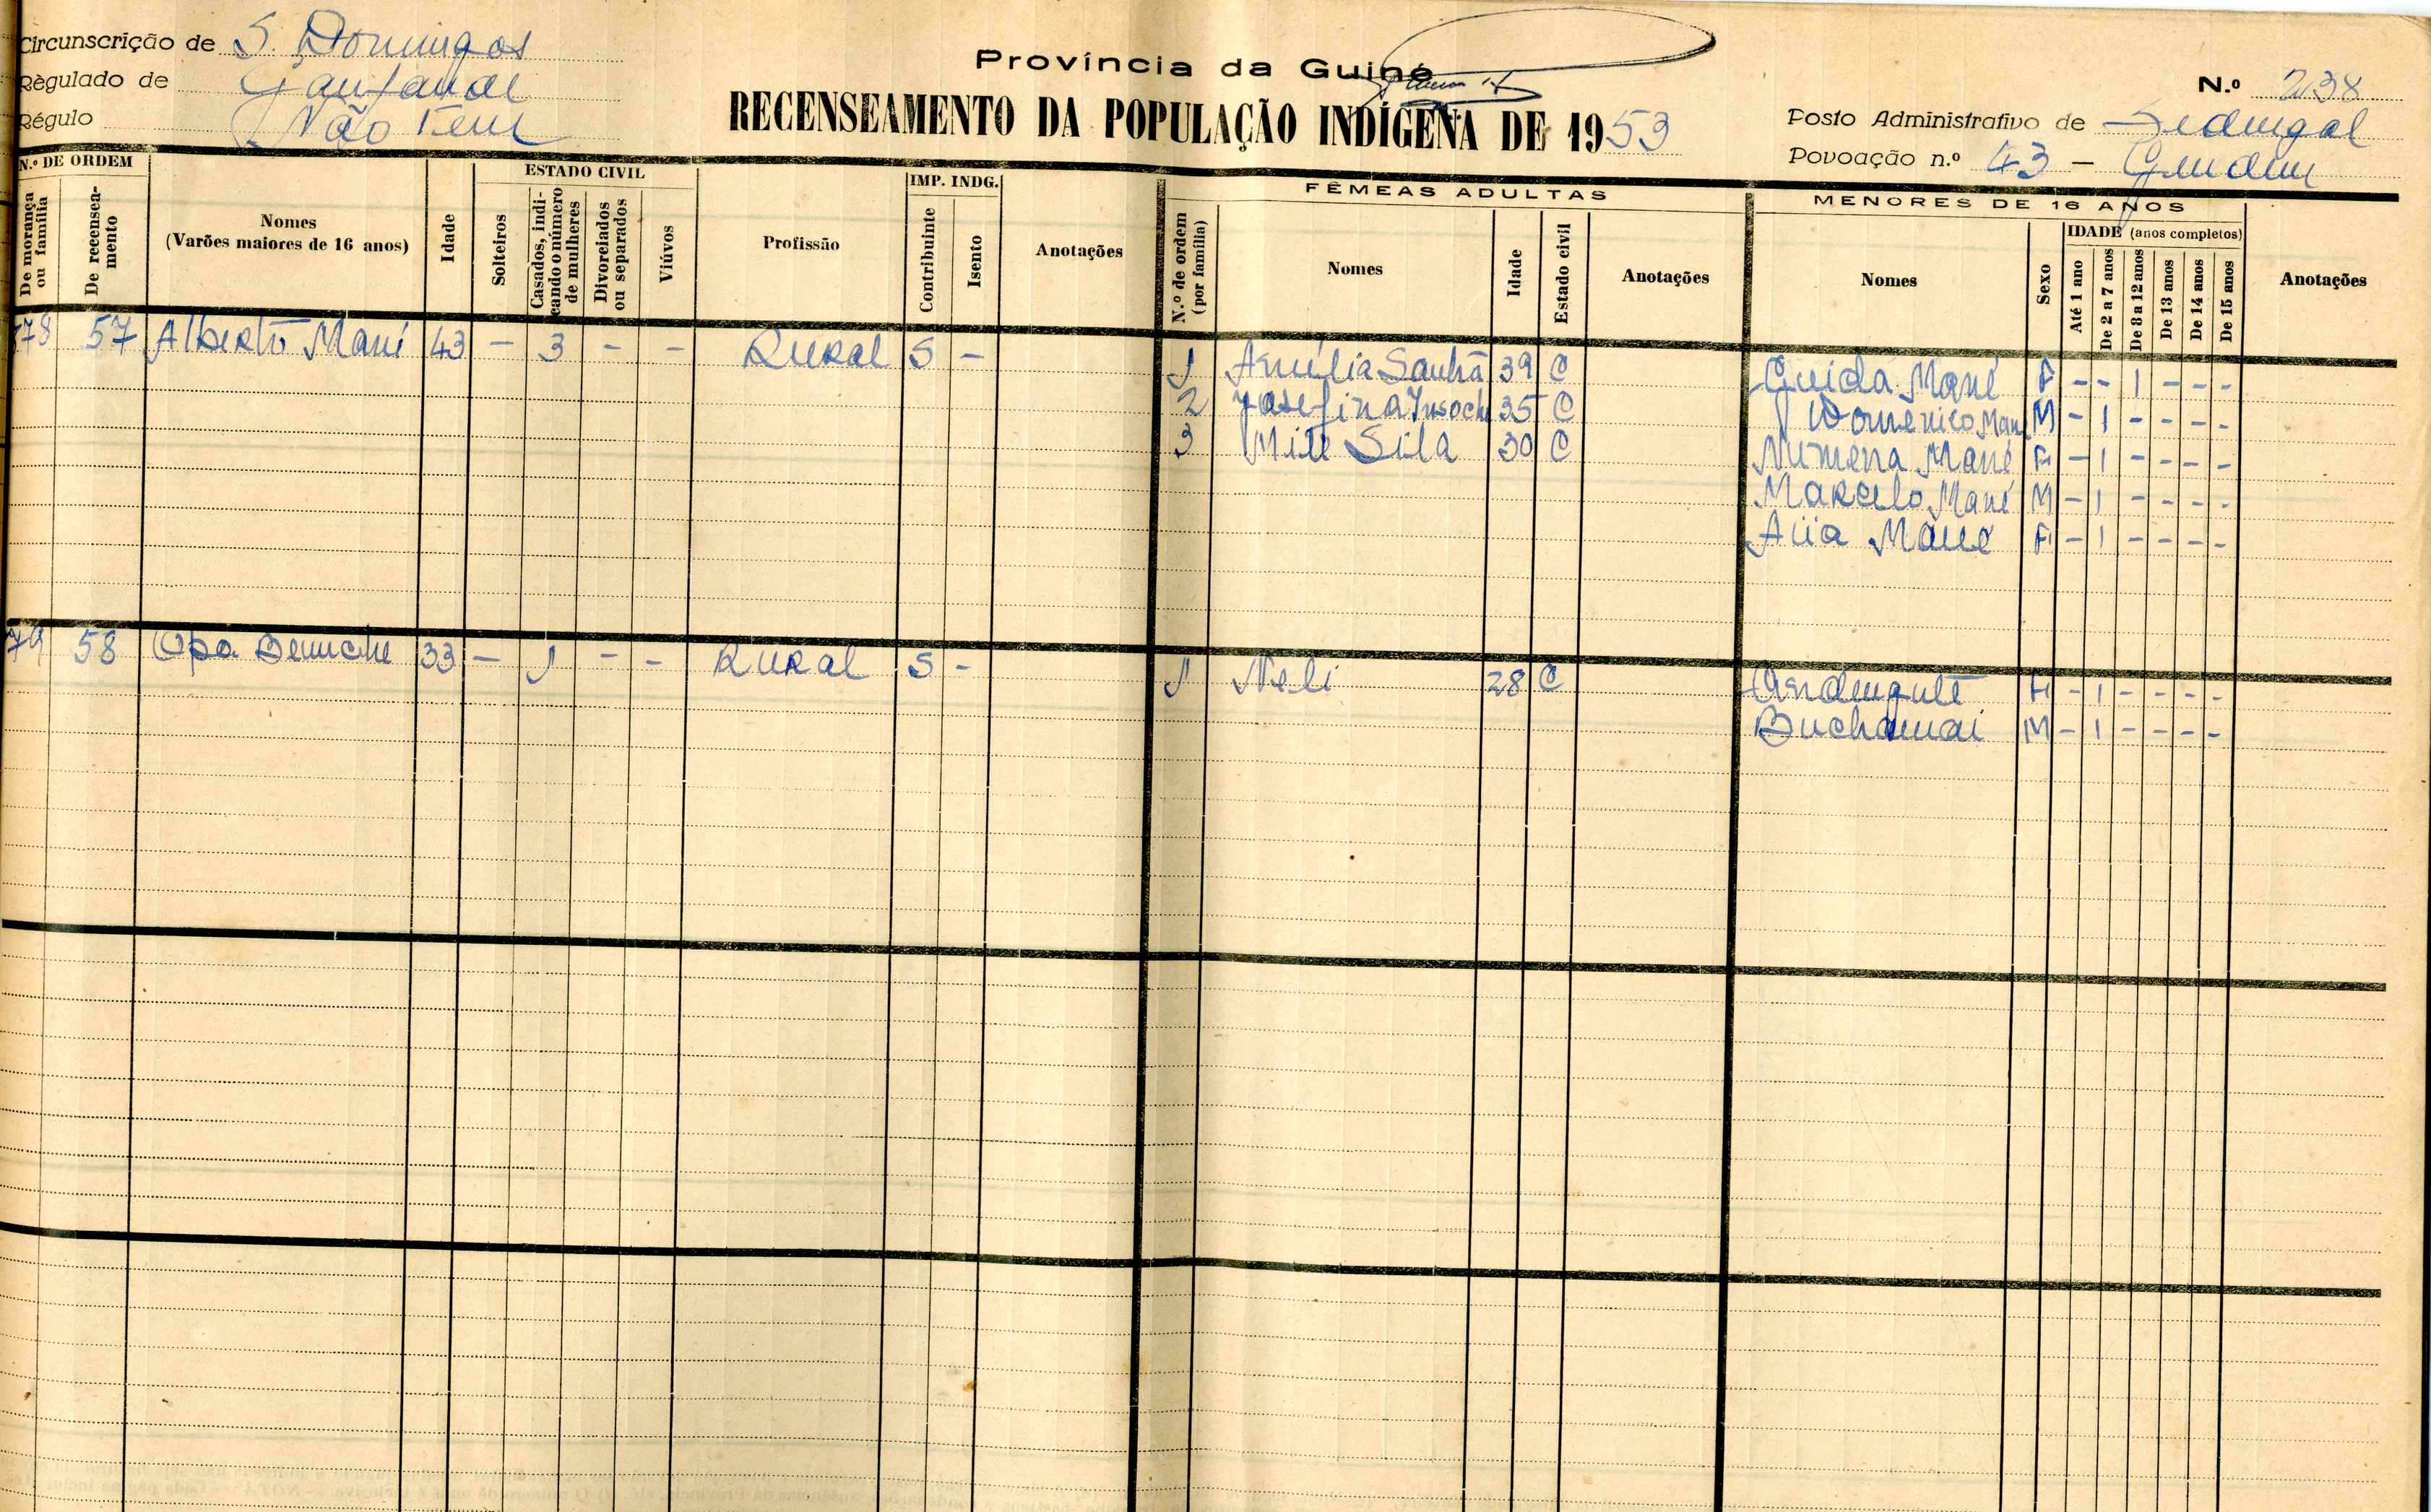 Circunscrição de S. Domingos
Règulado de
Régulo Não Tem
Província da Guiné
RECENSEAMENTO DA POPULAÇÃO INDÍGENA DE 1953
N.º 238
Posto Administrativo de Sedengal
Povoação n.º 43 -
N.º DE ORDEM
De morança ou família
De recenseamento
Nomes
(Varões maiores de 16 anos)
Idade
ESTADO CIVIL
Solteiros
Casados, indicando o número de mulheres
Divorciados ou separados
Viúvos
Profissão
IMP. INDG.
Contribuinte
Isento
Anotações
FÊMEAS ADULTAS
N.º de ordem (por família)
Nomes
Idade
Estado civil
Anotações
MENORES DE 16 ANOS
Nomes
Sexo
IDADE (anos completos)
Até 1 ano
De 2 a 7 anos
De 8 a 12 anos
De 13 anos
De 14 anos
De 15 anos
Anotações
57 Alberto Mané 43 - 3 - - Rural S - 1 Amélia Sanhá 39 C Guida Mané F - - 1 - - -
2 Josefina 35 C Domenico Mané M - 1 - - - -
3 Mite Sila 30 C Numena Mané F - 1 - - - -
Marcelo Mané M - 1 - - - -
Mané F - 1 - - - -
79 58 33 - 1 - - Rural S - 1 Neli 28 C F - 1 - - - -
Buchamai M - 1 - - - -